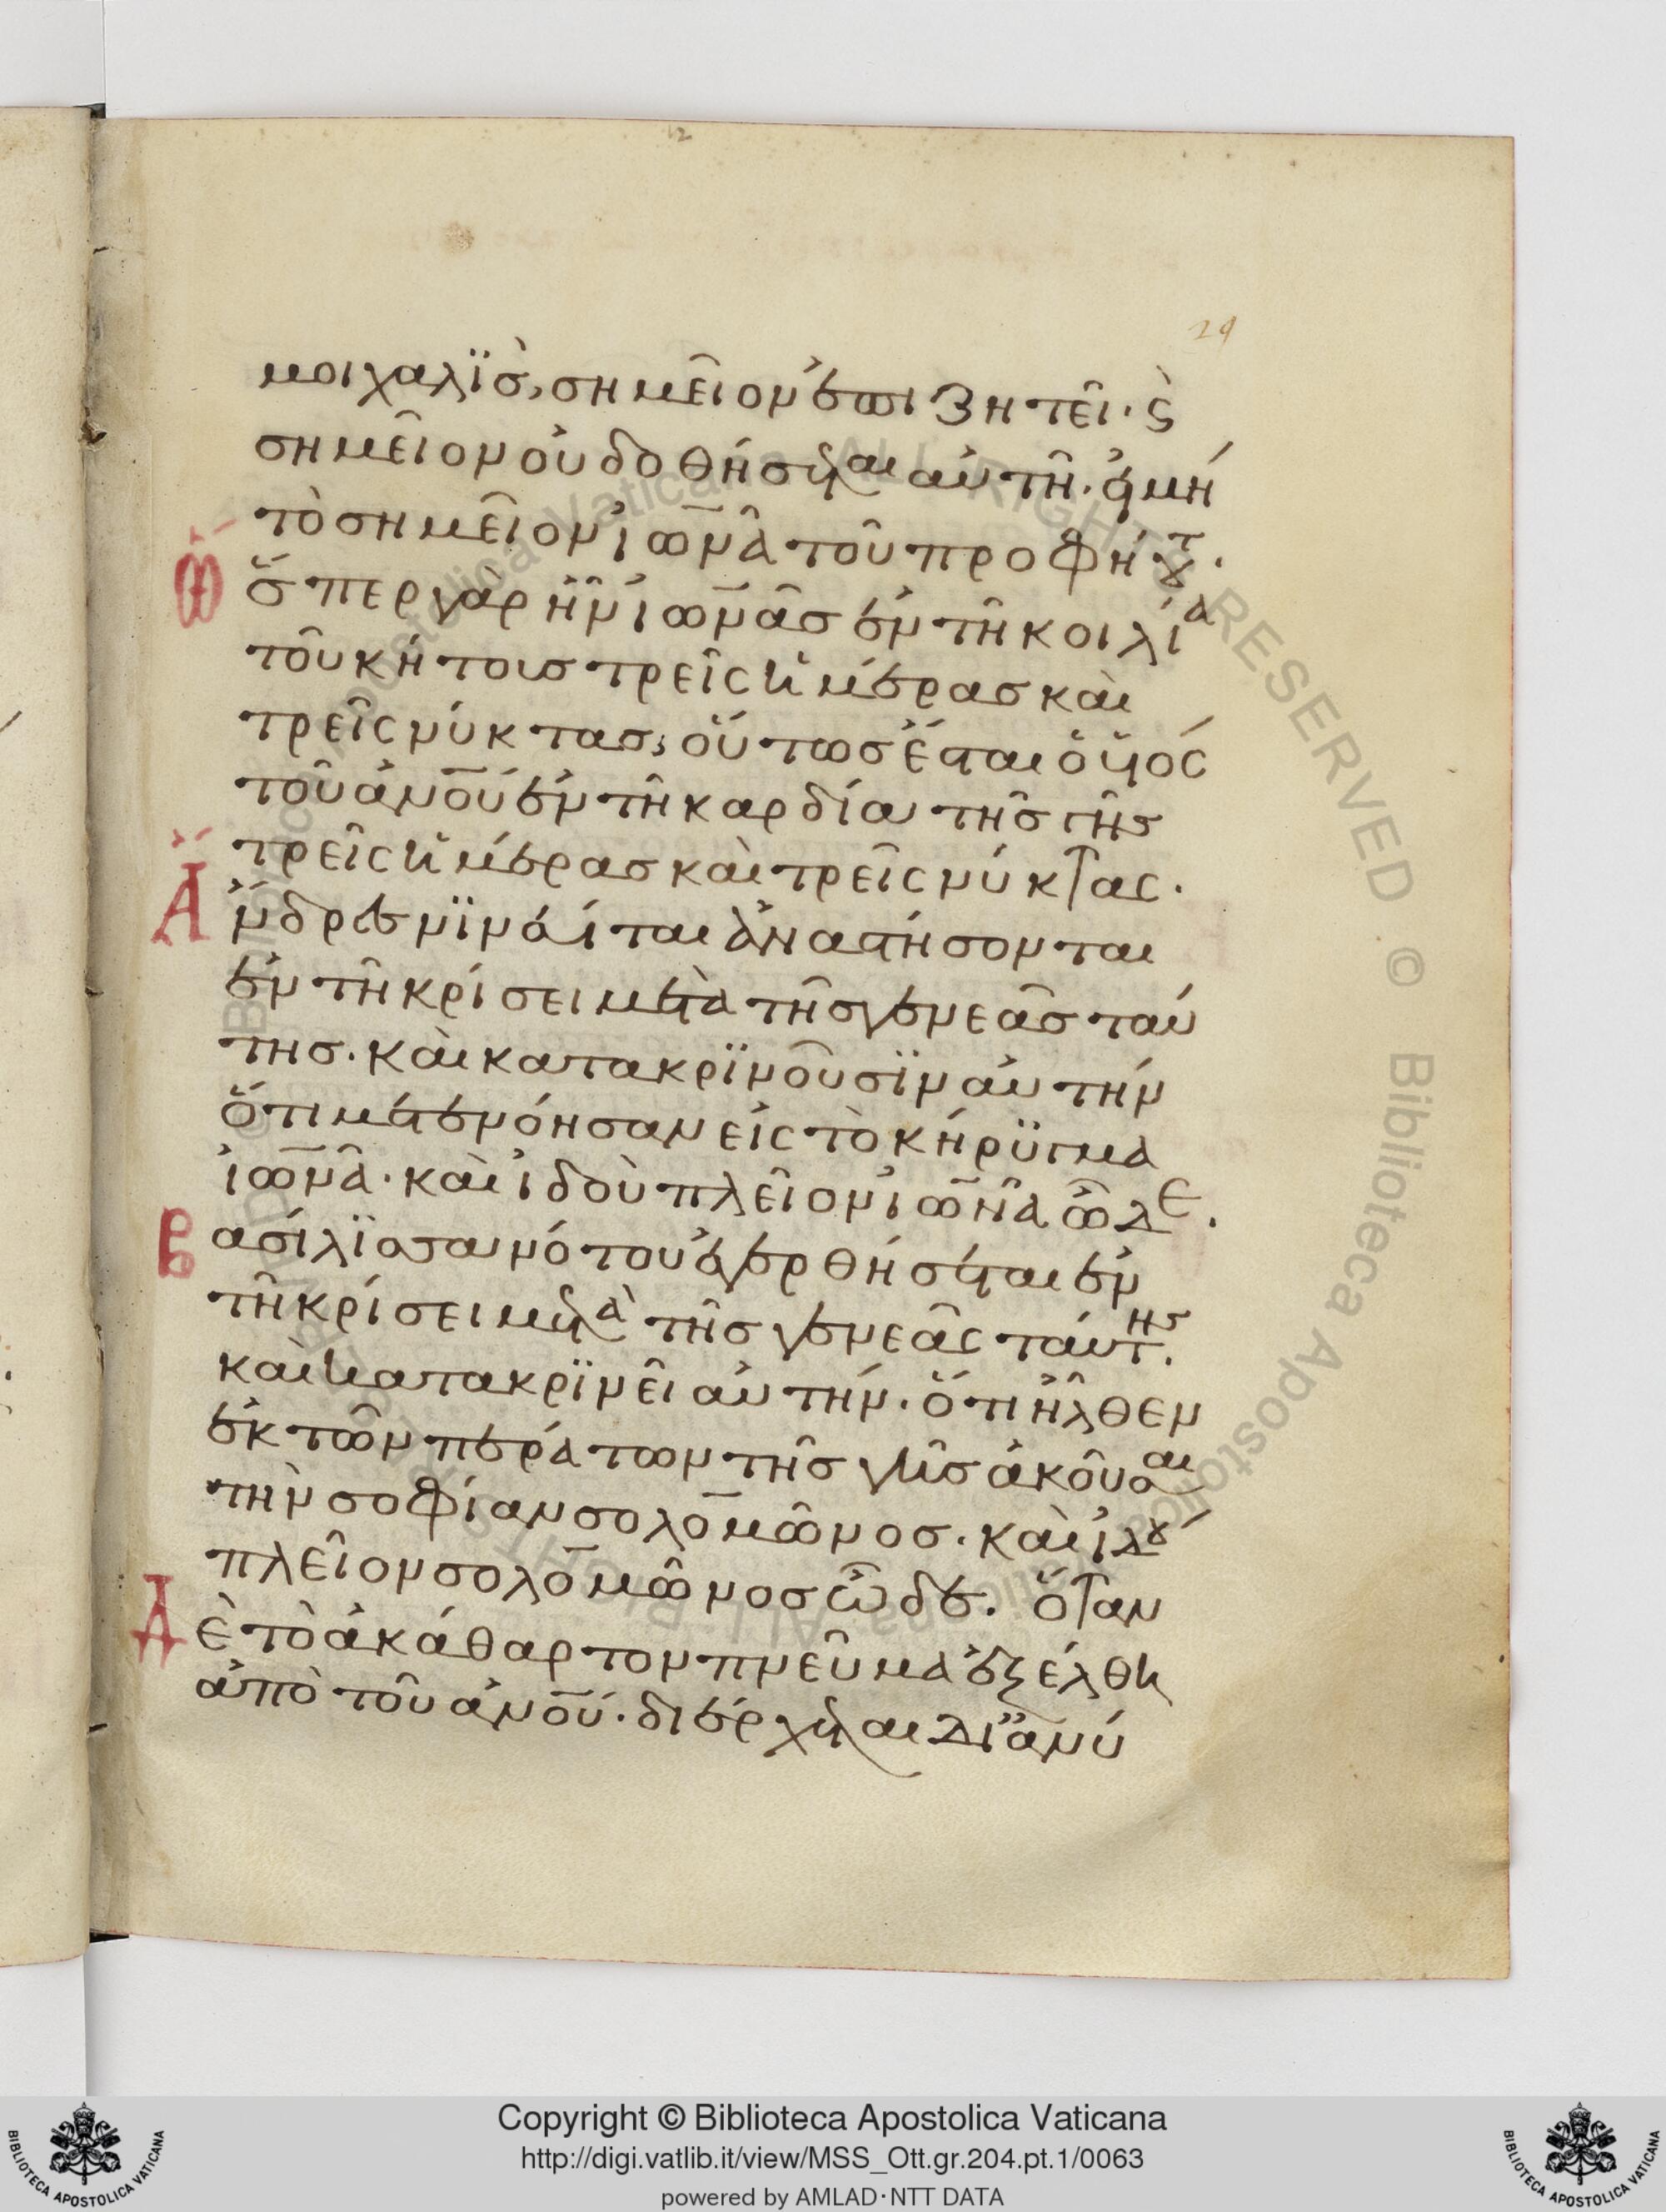 29
μοιχαλῒς, σημεῖον ἐπιζητεῖ· ϛ̀
σημεῖον οὐ δοθήσεται αὐτῆ· εἰ μή
τὸ σημεῖον ἰωνᾶ τοῦ προφήτου.
Ὥσπερ γὰρ ἦν ἰωνᾶς ἐν τῆ κοιλία
τοῦ κήτους τρεῖς ἡμέρας καὶ
τρεῖς νύκτας, οὕτως ἔσται ὁ υἱός
τοῦ ἀνου ἐν τῆ καρδία τῆς γῆς
τρεῖς ἡμέρας καὶ τρεῖς νύκτας.
Ἄνδρες νϊνευίται ἀναστήσονται
ἐν τῆ κρίσει μετὰ τῆς γενεᾶς ταύ
της. καὶ κατακρϊνοῦσϊν αὐτήν
ὅτι μετενόησαν εἰς τὸ κήρϋγμα
ἰωνᾶ. καὶ ἰδοὺ πλεῖον ἰωνᾶ ὧδε.
Βασίλϊσσα νότου ἐγερθήσεται ἐν
τῆ κρίσει μετὰ τῆς γενεᾶς ταύτης.
καὶ κατακρϊνεῖ αὐτήν. ὅτι ἦλθεν
ἐκ τῶν περάτων τῆς γῆς ἀκοῦσαι
τὴν σοφίαν σολομῶνος. καὶ ἰδού
πλεῖον σολομῶνος ὧδε. ὅταν
Δὲ τὸ ἀκάθαρτον πνεῦμα ἐξέλθη
ἀπὸ τοῦ ἀνου. διέρχεται δι ἀνύ
Copyright © Biblioteca Apostolica Vaticana
http://digi.vatlib.it/view/MSS_Ott.gr.204.pt.1/0063
powered by AMLAD·NTT DATA
BIBLIOTECA APOSTOLICA VATICANA
BIBLIOTECA APOSTOLICA VATICANA